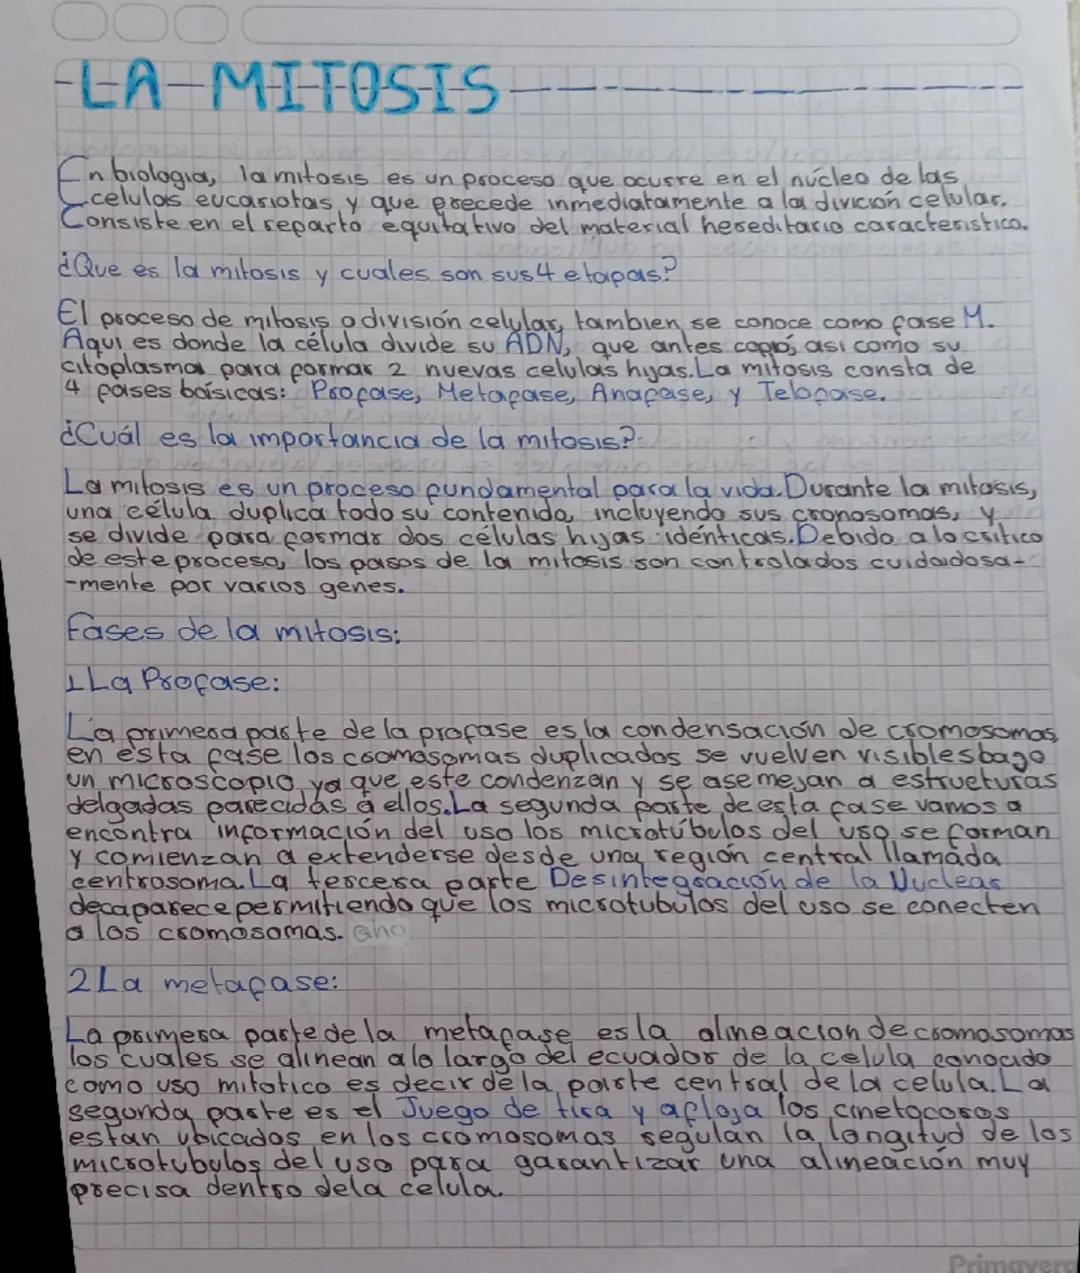 LA MITOSIS
En biologia, la mitosis es un proceso que ocurre en el núcleo de las
celulas eucariotas y que precede inmediatamente a la divición celular.
Consiste en el reparto equitativo del material hereditario caracteristico.
¿Que es la mitosis y cuales son sus 4 etapas?
El proceso de mitosis o división celular, tambien se conoce como fase M.
Aqui es donde la célula divide su ADN, que antes copió, asi como su
citoplasma para formar 2 nuevas celulas hijas. La mitosis consta de
4 fases básicas: Profase, Metafase, Anafase, y Telofase.
¿Cuál es la importancia de la mitosis?
La mitosis es un proceso fundamental para la vida. Durante la mitosis,
una célula duplica todo su contenido, incluyendo sus cronosomas, y
se divide para formar dos células hijas idénticas. Debido a lo critico
de este proceso, los pasos de la mitosis son controlados cuidadosa-
-mente por varios genes.
Fases de la mitosis:
1 La Profase:
La primera parte de la profase es la condensación de cromosomas
en esta fase los cromosomas duplicados se vuelven visibles bago
un microscopio, ya que este condenzan y se asemejan a estrueturas
delgadas parecidas a ellos. La segunda parte de esta fase vamos a
encontra información del uso los microtúbulos del uso se forman
y comienzan a extenderse desde una región central llamada
centrosoma. La tercera parte Desintegración de la Nuclear
decaparece permitiendo que los microtubulos del uso se conecten
a los cromosomas. aho
2 La metafase:
La primera parte de la metafase es la alineacion de cromosomas
los cuales se alinean a lo largo del ecuador de la celula conocido
como uso mitotico es decir de la parte central de la celula. La
segunda parte es el Juego de tira y afloja los cinetocoros
estan ubicados en los cromosomas segulan la longitud de los
microtubulos del uso para garantizar una alineación muy
precisa dentro dela celula.
Primavera